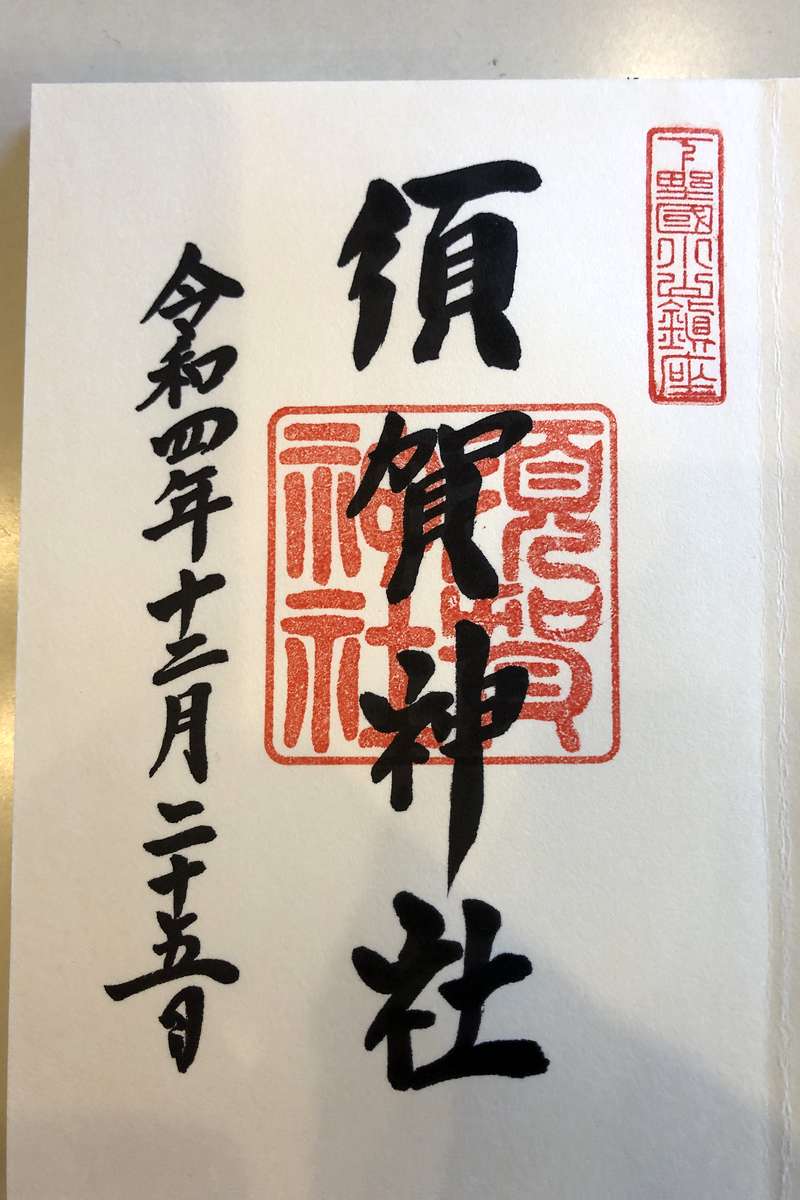 下野國小山鎮座
須賀神社
須賀
神社
令和四年十二月二十五日